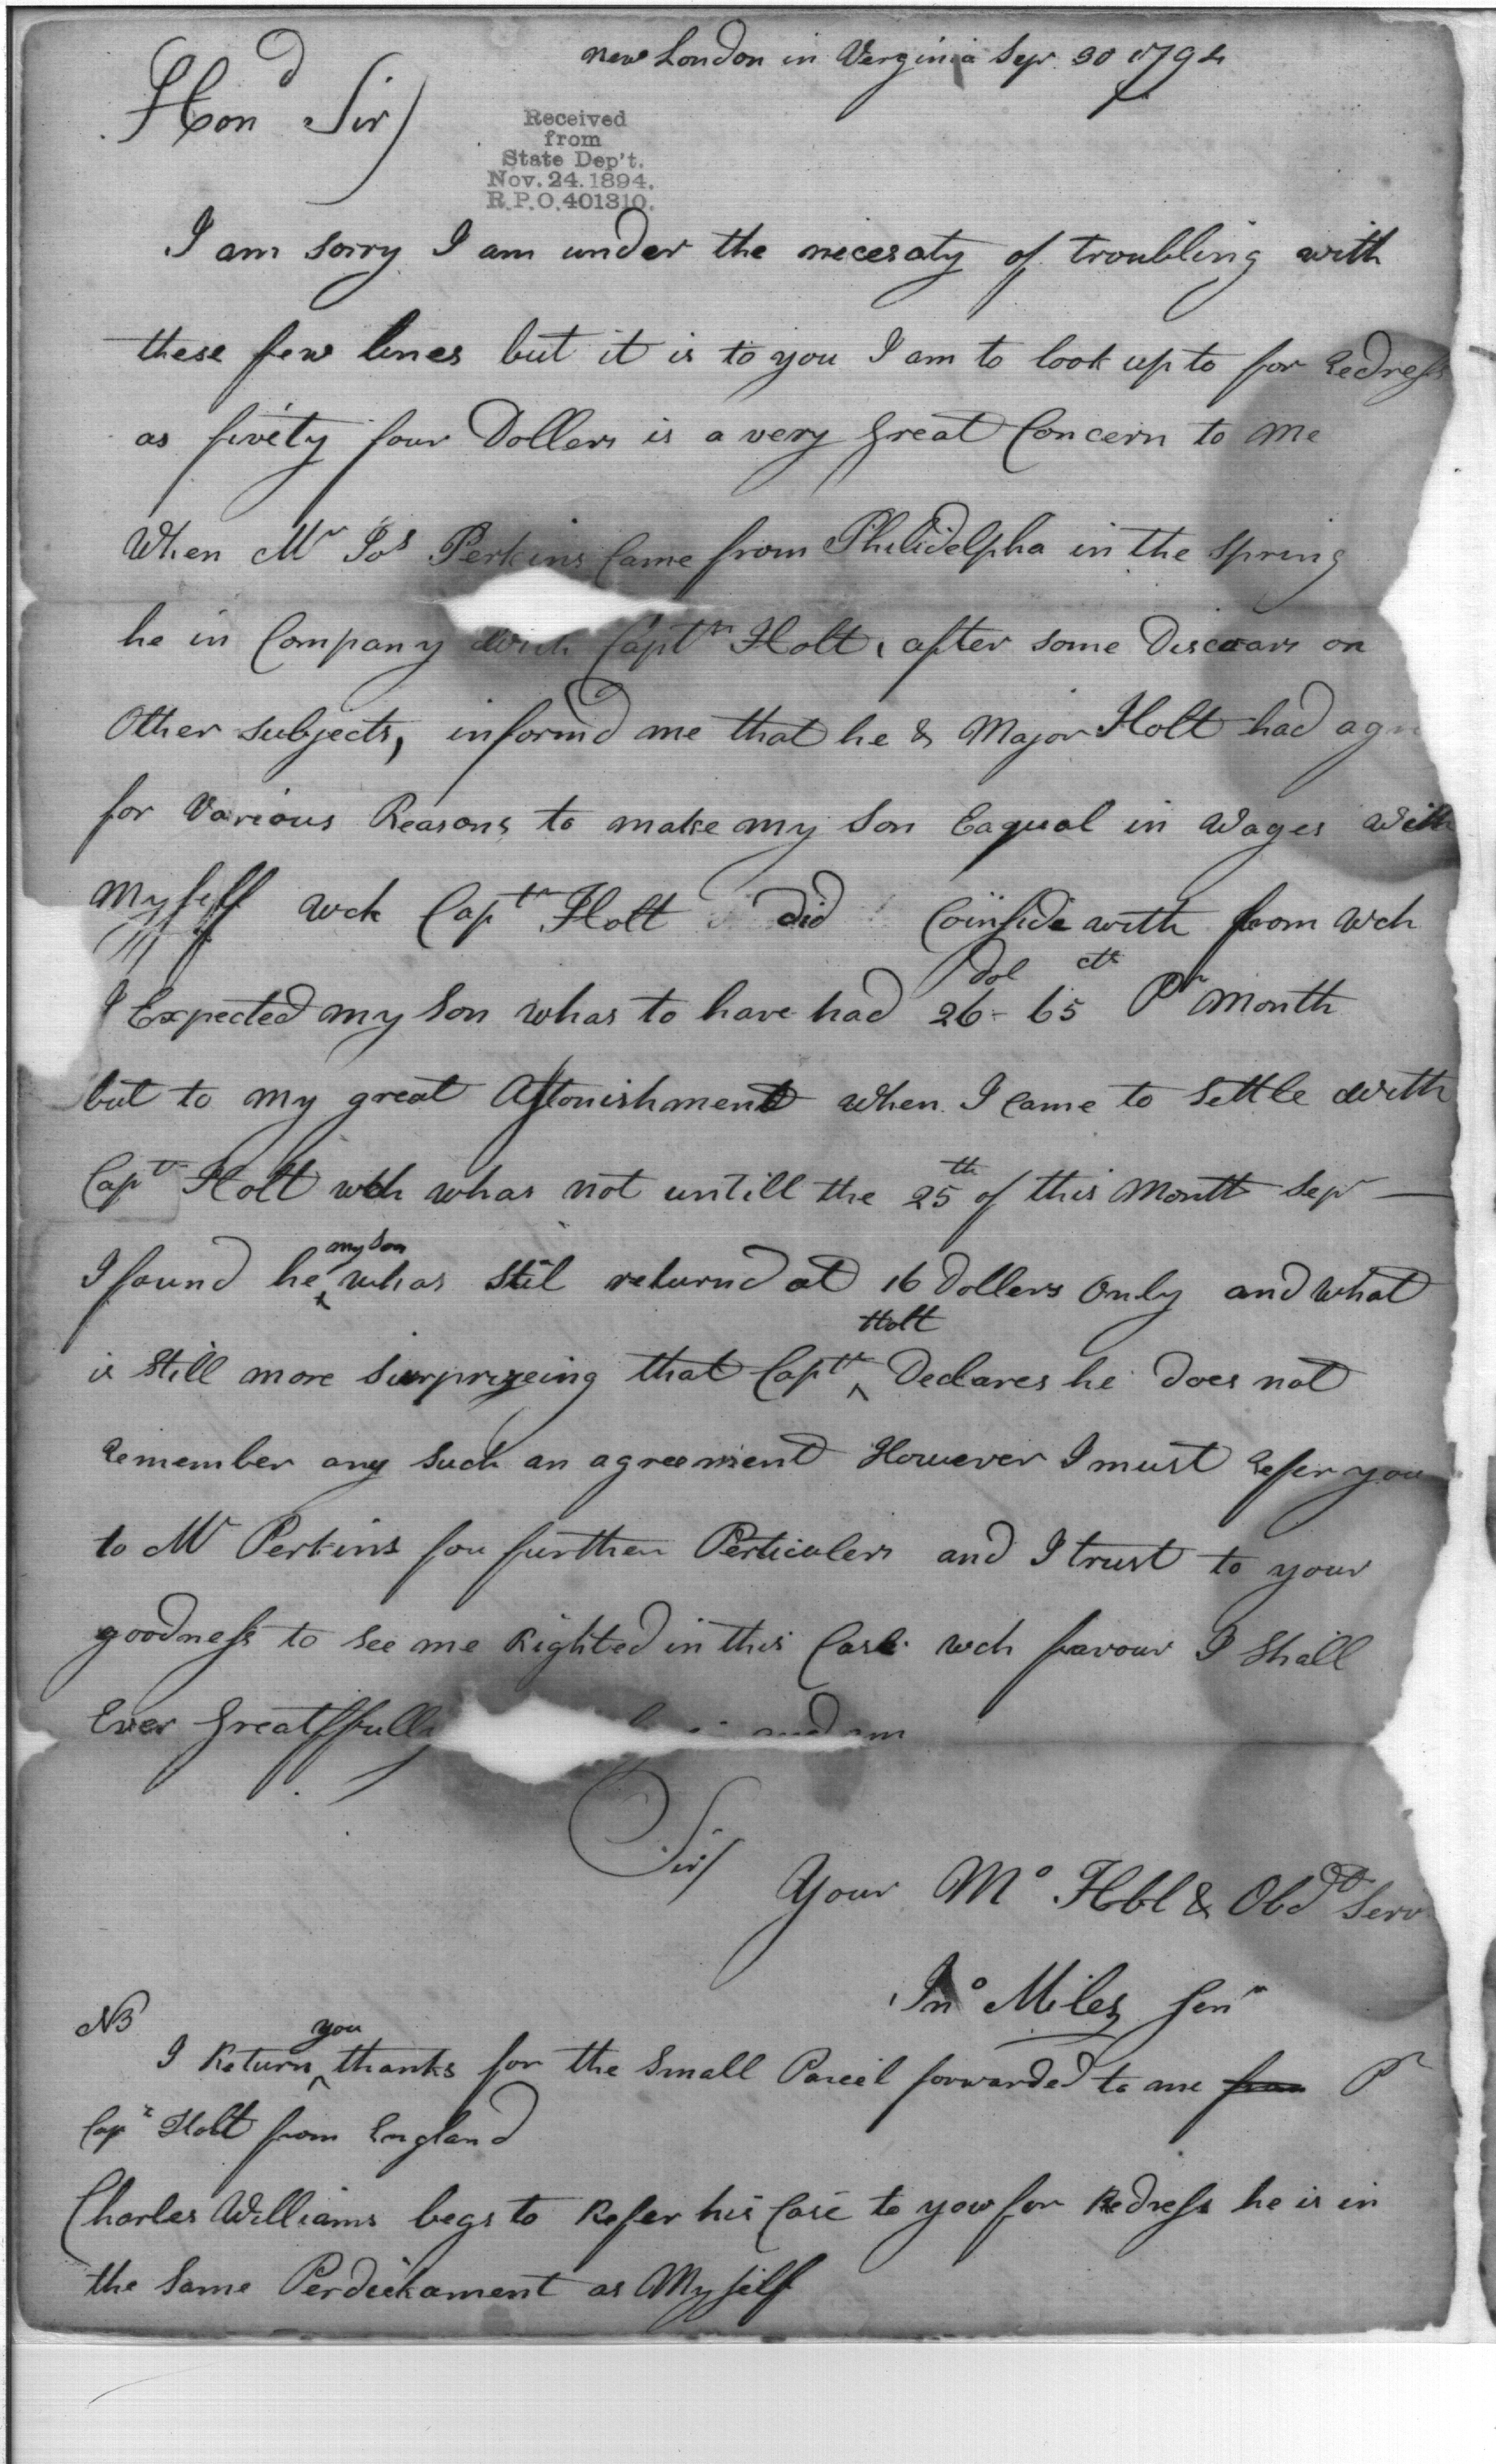 New London in Verginia Sepr. 30 1794
Hond Sir/
Received
from
State Dep't.
Nov. 24. 1894.
R.P.O. 401310.
I am sorry I am under the necesaty of troubling with
these few lines but it is to you I am to look up to for Redress
as fivety four Dollers is a very great Concern to me
When Mr Jos Perkins Came from Philidelpha in the spring
he in Company with Captn Holt, after some Discoars on
Other subjects, informd me that he & Major Holt had
for Various Reasons to make my Son Eaqual in Wages With
Myself wch Captn Holt did Coinside with from wch
I Expected my Son whas to have had 26 dol - 65 cts Pr Month
but to my great Astonishment when I Came to Settle with
Captn Holt wch whas not untill the 25th of this Month Sepr
I found he my Son whas stil returnd at 16 Dollers Only and what
is Still more Surprizeing that Captn Holt Declares he does not
Remember any such an agreement However I must Refer you
to Mr Perkins for further Perticulers and I trust to your
goodness to see me Righted in this Case wch favour I shall
Ever Greatffully and am
Sir/
Your Mo Hbl & Obdt Serv
Jno Miles Senr
NB
I Return you thanks for the Small Parcel forwarded to me from Pr
Capt Holt from England
Charles Williams begs to Refer his Case to you for Redress he is in
the Same Perdeekament as Myself